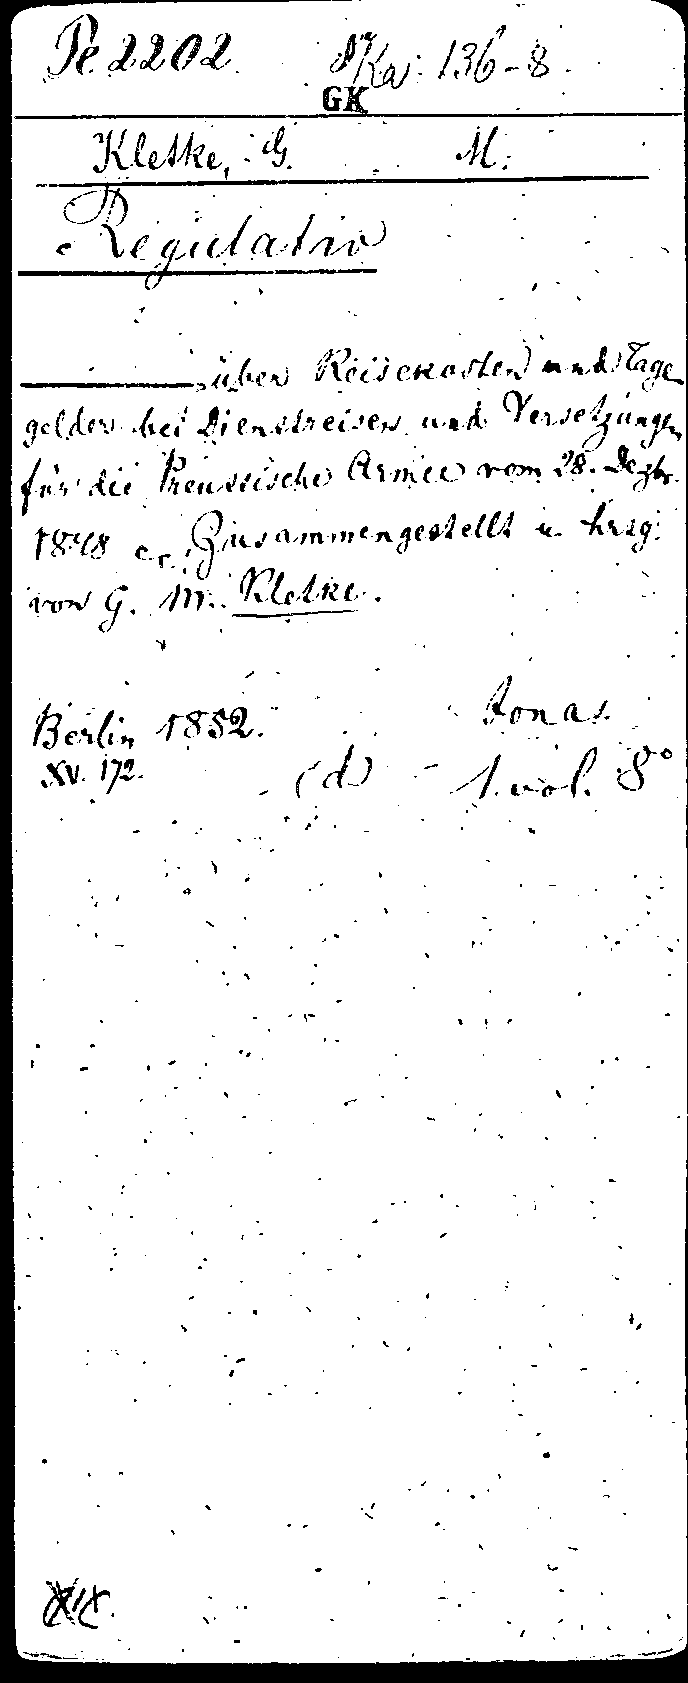 Pe 2202. Ka: 136-8.
GK
Kletke, G. M.
Regulativ
über Reisekosten und Tage
gelder bei Dienstreisen und Versetzungen
für die Preussische Armee vom 28. Dezbr.
1848 cc. Zusammengestellt u. hrsg.
von G. M. Kletke.
Berlin 1852. Jonas.
XV. 172. (d) 1. vol. 8°